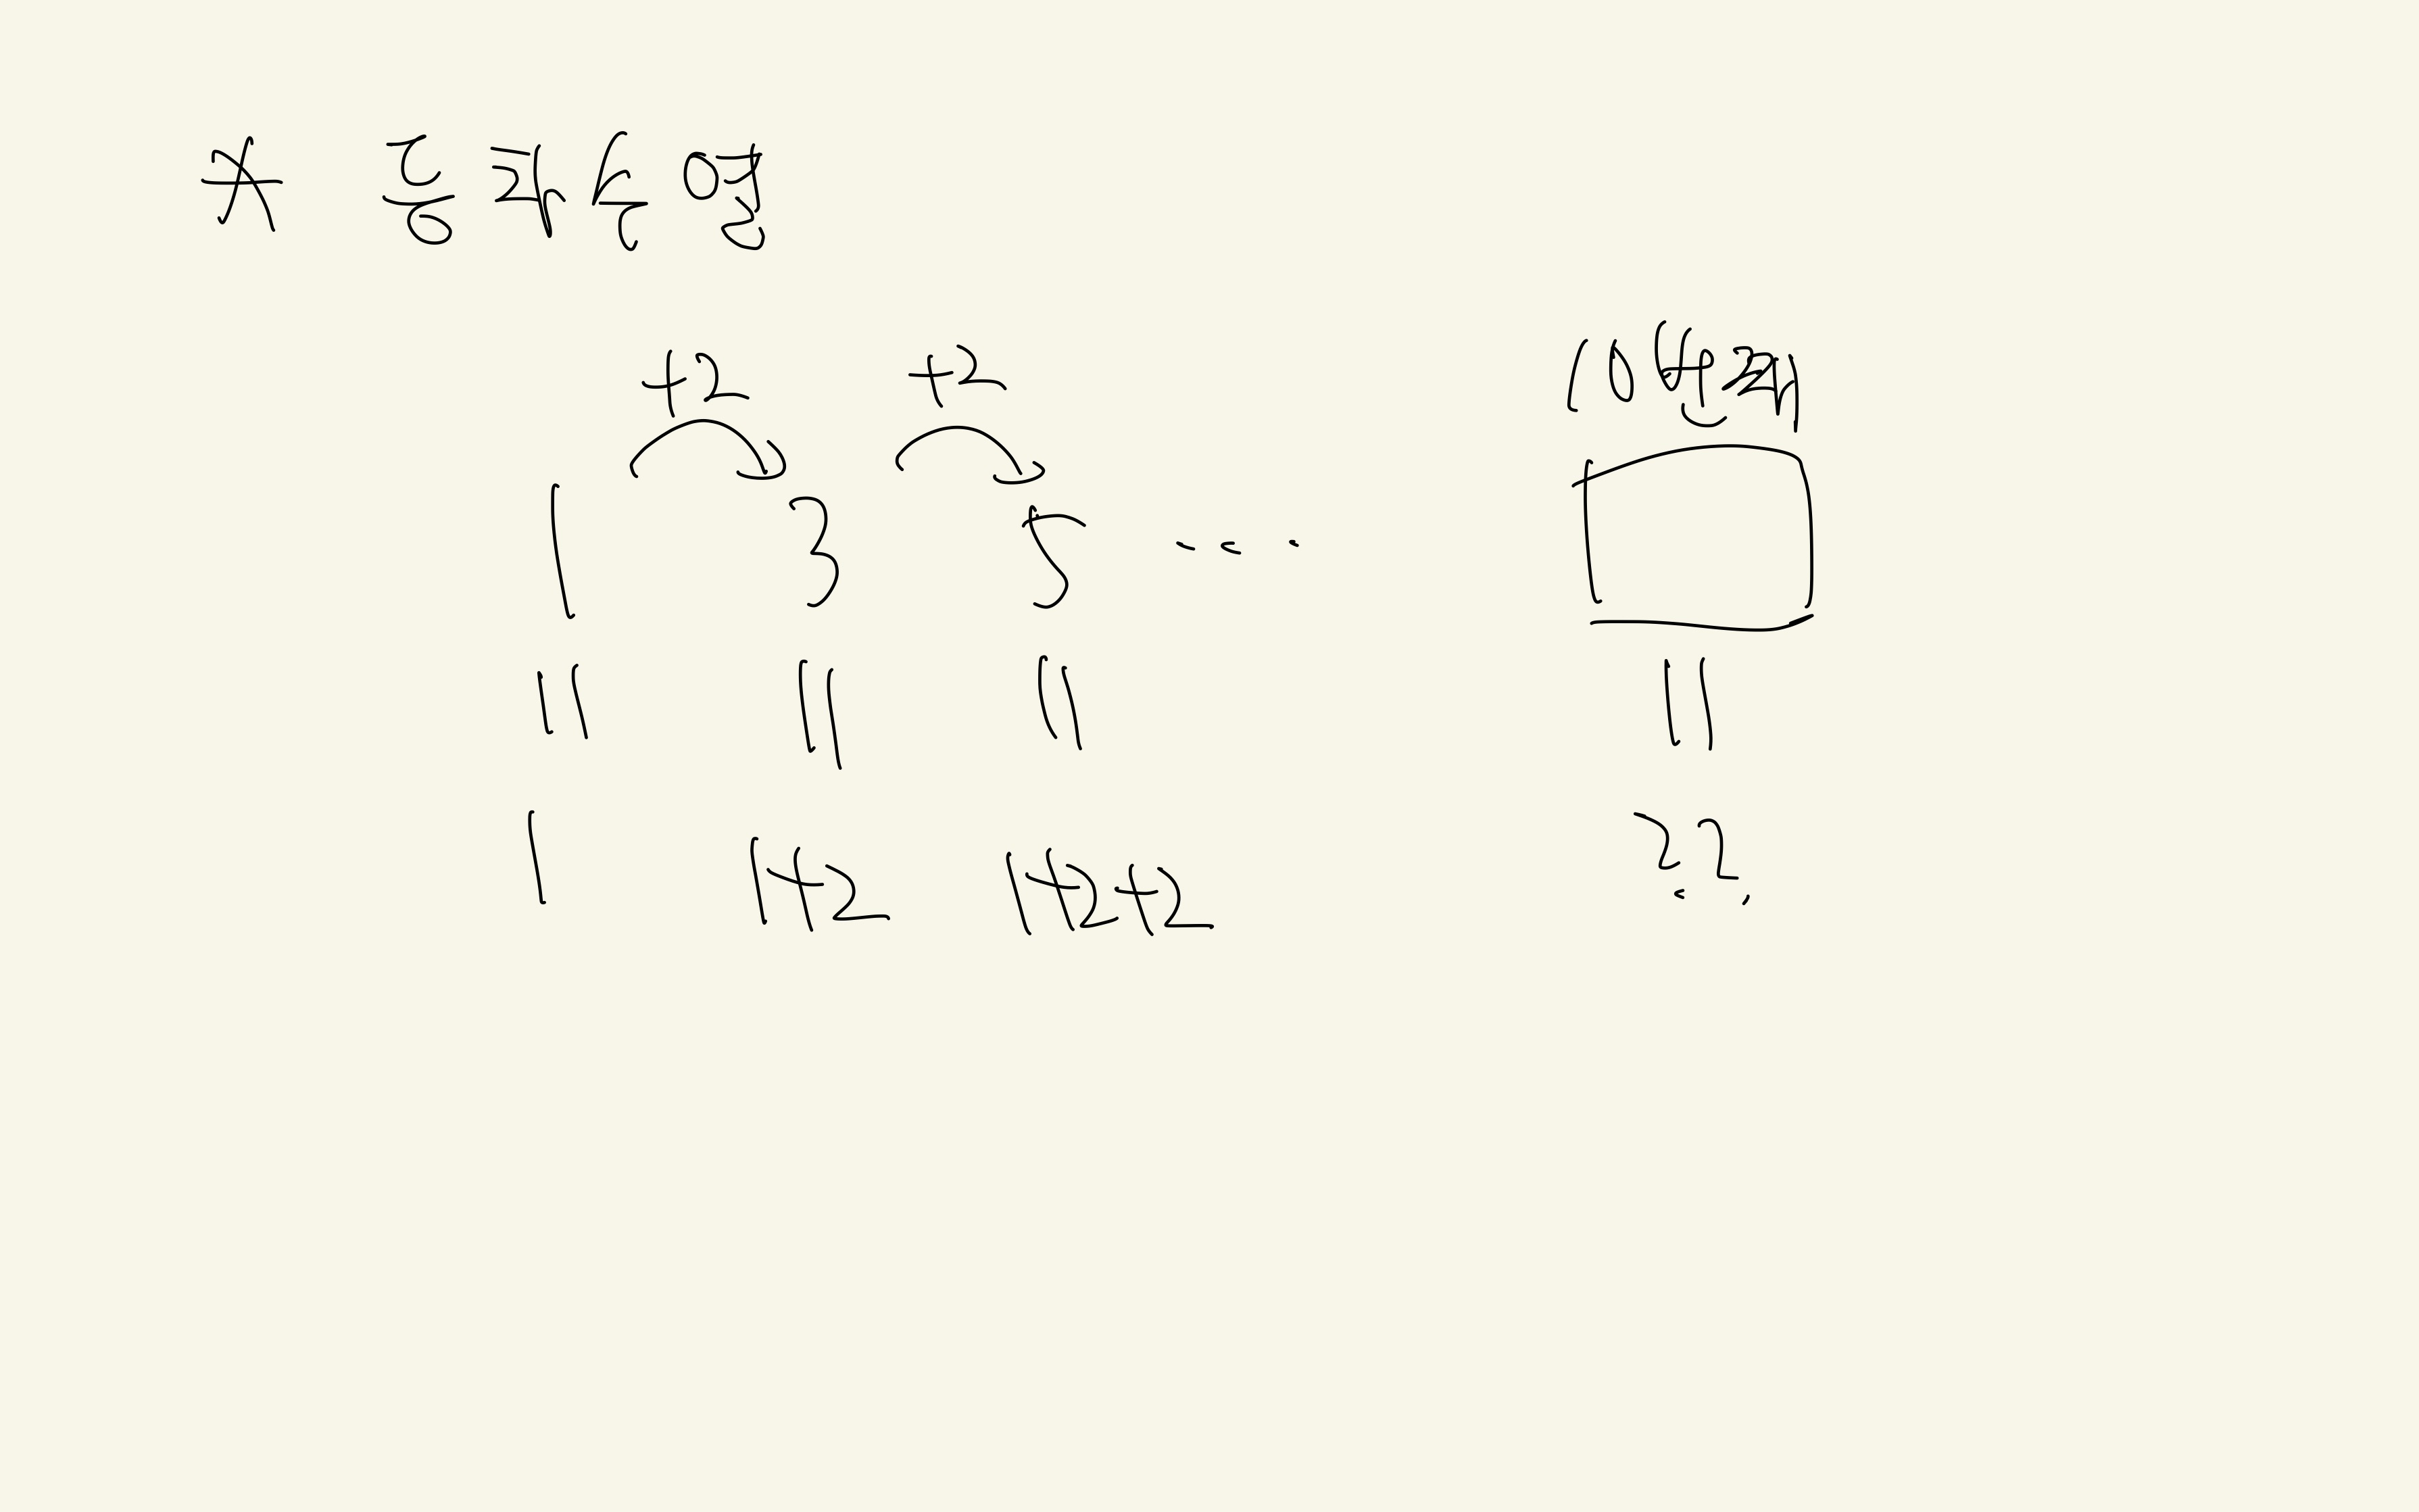 * 등차수열
+2 +2 10번째
1 3 5 ...
|| || || ||
1 1+2 1+2+2 ??